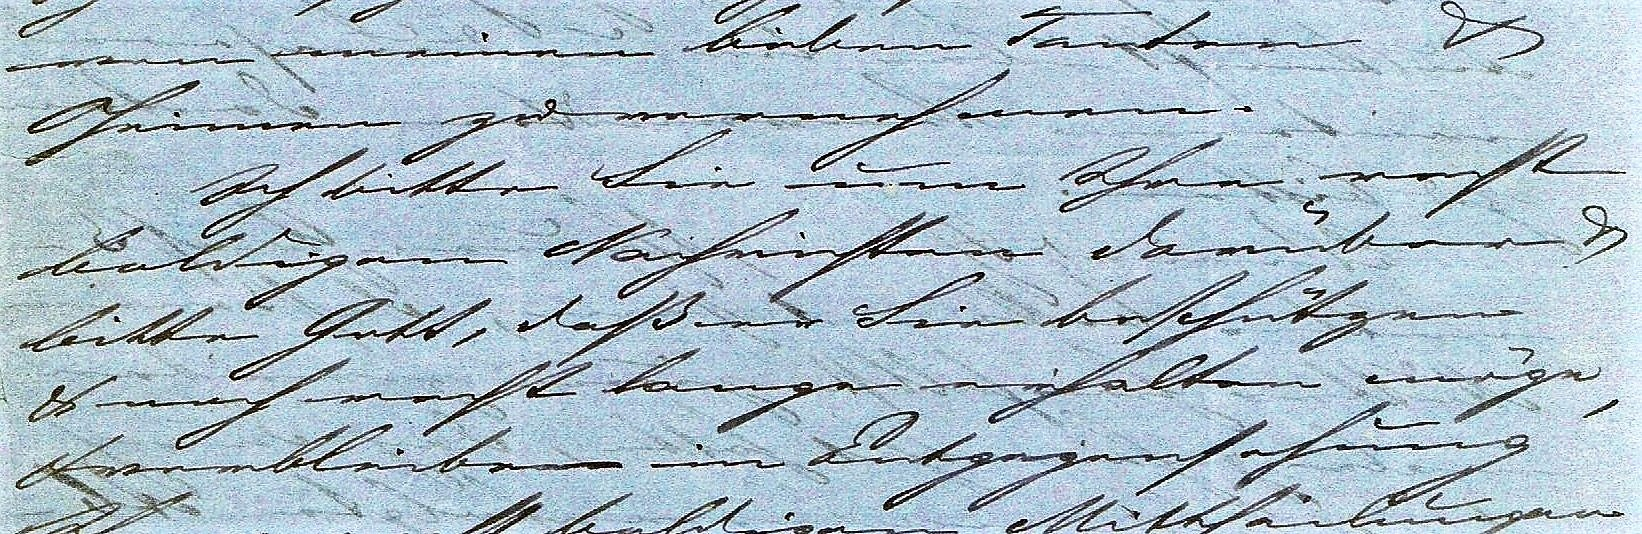 von meinen lieben Tanten &
Cheimen zu vernehmen.
Ich bitte Sie um Ihre recht
baldigen Nachrichten darüber &
bitte Gott, daß er Sie beschützen
& noch recht lange erhalten möge,
& verbleibe in Entgegensehung
baldigen Mittheilungen